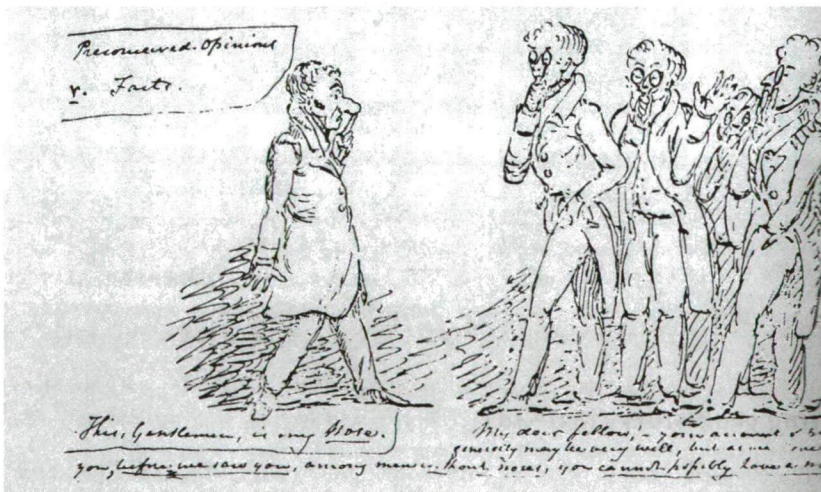 Preconceived Opinions
v. Facts.
This, Gentlemen, is my Nose.
My dear fellow! – your account of
sincerity may be very well, but as we
you, before we saw you, among men without noses, you cannot possibly have a